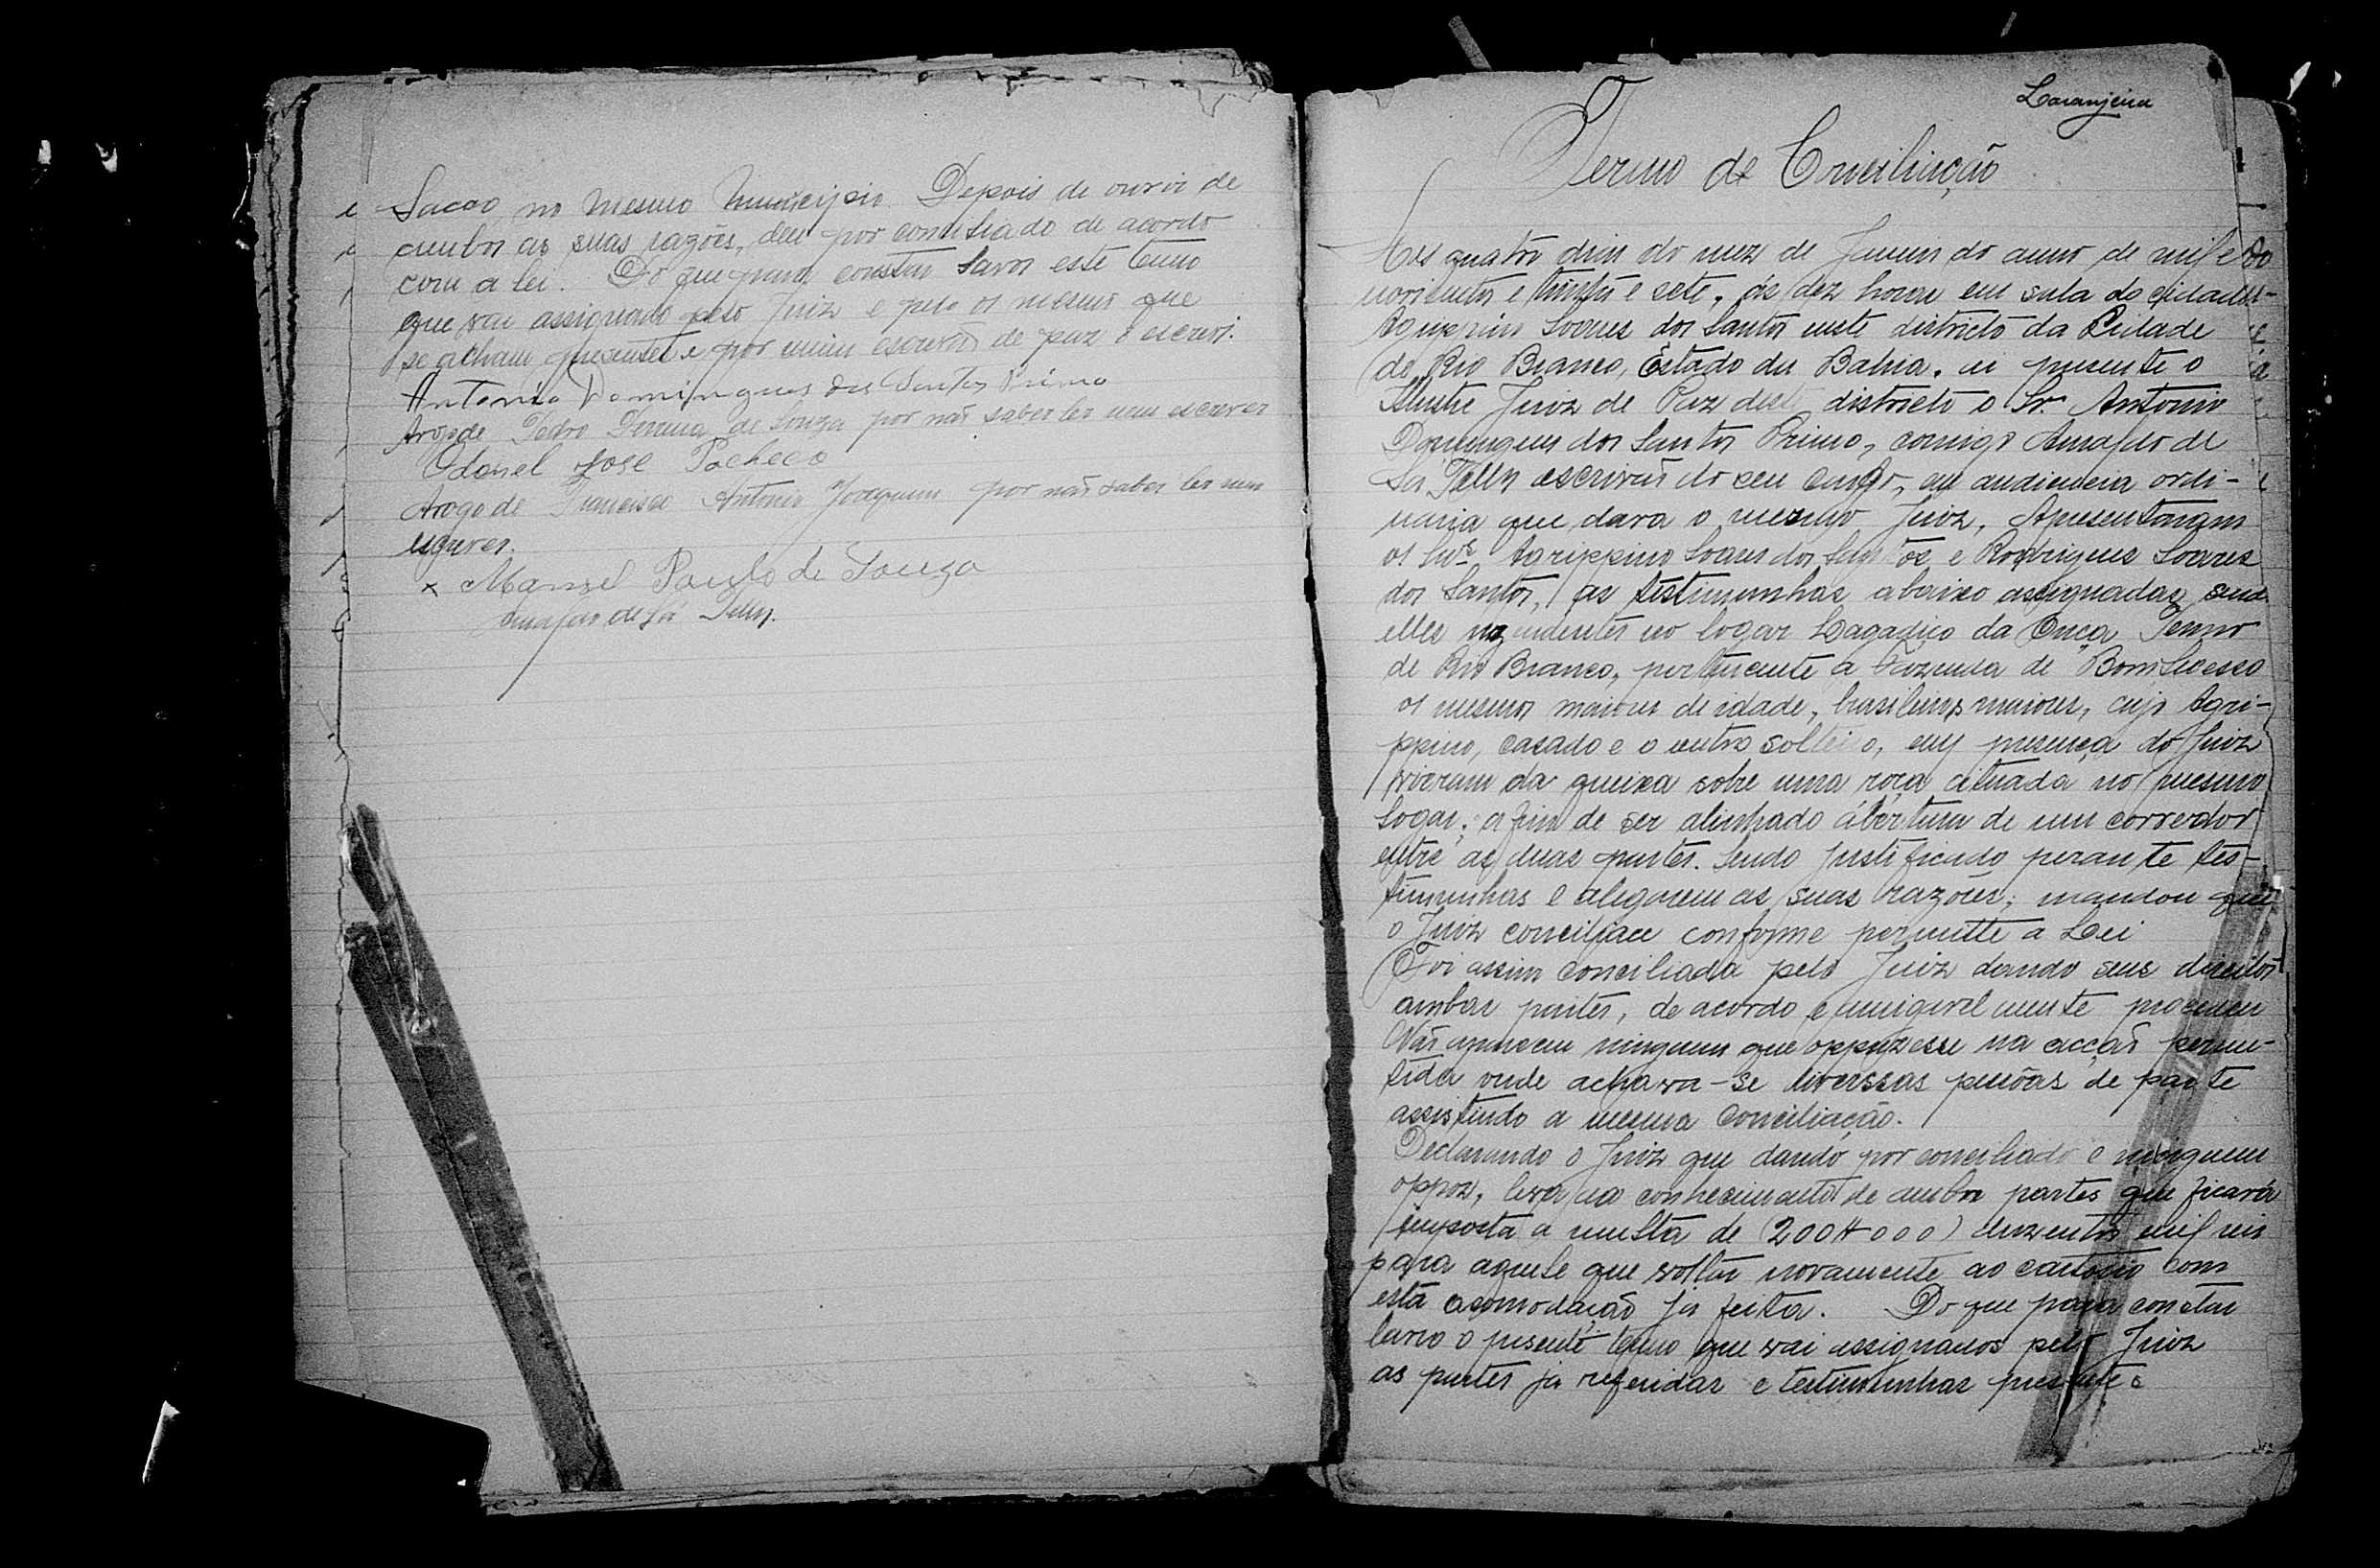 Sacco no mesmo Municipio. Depois de ouvir de
ambos as suas razões, deu por consiliado de acordo
com a lei. Do que para constar lavor este termo
que vai assignado pelo Juiz e pelo os mesmos que
se acham presentes e por mim escrivão de paz o escrevi.
Antonio Domingues dos Santos Primo
Arogo de Pedro Pereira de Souza por não saber ler nem escrever
Odonel José Pacheco
Arogo de Francisco Antonio Joaquim por não saber ler nem
escrever.
x Manoel Paulo de Souza
Amafro de Sá Telly.
Laranjeira
Termo de Conciliação
Aos quatro dias do mez de do anno de mil e
novicentos e trinta e sete, ás dez horas em sala do cidadão
Agrippino Soares dos Santos neste districto da Cidade
de Rio Branco, Estado da Bahia. ai presente o
Illustre Juiz de Paz deste districto o Sr. Antonio
Domingues dos Santos Primo, comigo Amafro de
Sá Telly escrivão do seu cargo, em audiencia ordi-
naria que dava o mesmo Juiz, Apresentaram
os Snrs Agrippino Soares dos Santos e Rodrigues Soares
dos Santos, as testimunhas abaixo assignadas, sendo
elles rezidentes no logar Lagadiço da Onça, Termo
de Rio Branco, pertencente a Fazenda de Bom Sucesso
os mesmos maiores de idade, brasileiros maiores, cujo Agri-
ppino, casado e o outro solteiro, em presença do Juiz
vieram dar queixa sobre uma roça cituada no mesmo
logar; a fim de ser alinhado ábertura de um corredor
entre as duas partes. Sendo justificado perante tes-
timunhas e alegarem as suas razões; mandou que
o Juiz conciliace conforme permitte a Lei
Foi assim conciliada pelo Juiz dando seus direitos
ambas partes, de acordo e amigavelmente procedeu
Não apareceu ninguem que oppuzesse na acção
onde achava-se diverssas pessoas de parte
assistindo a mesma Conciliação.
Declarando o Juiz que dando por conciliado e ninguem
oppoz, leva ao conhecimento de ambas partes que ficará
imposta a multa de (200#000) duzentos mil reis
para aquele que voltar novamente ao cartorio com
esta acomodação já feita. Do que para constar
lavro o presente termo que vai assignados pelo Juiz
as partes já referidas e testimunhas presente e